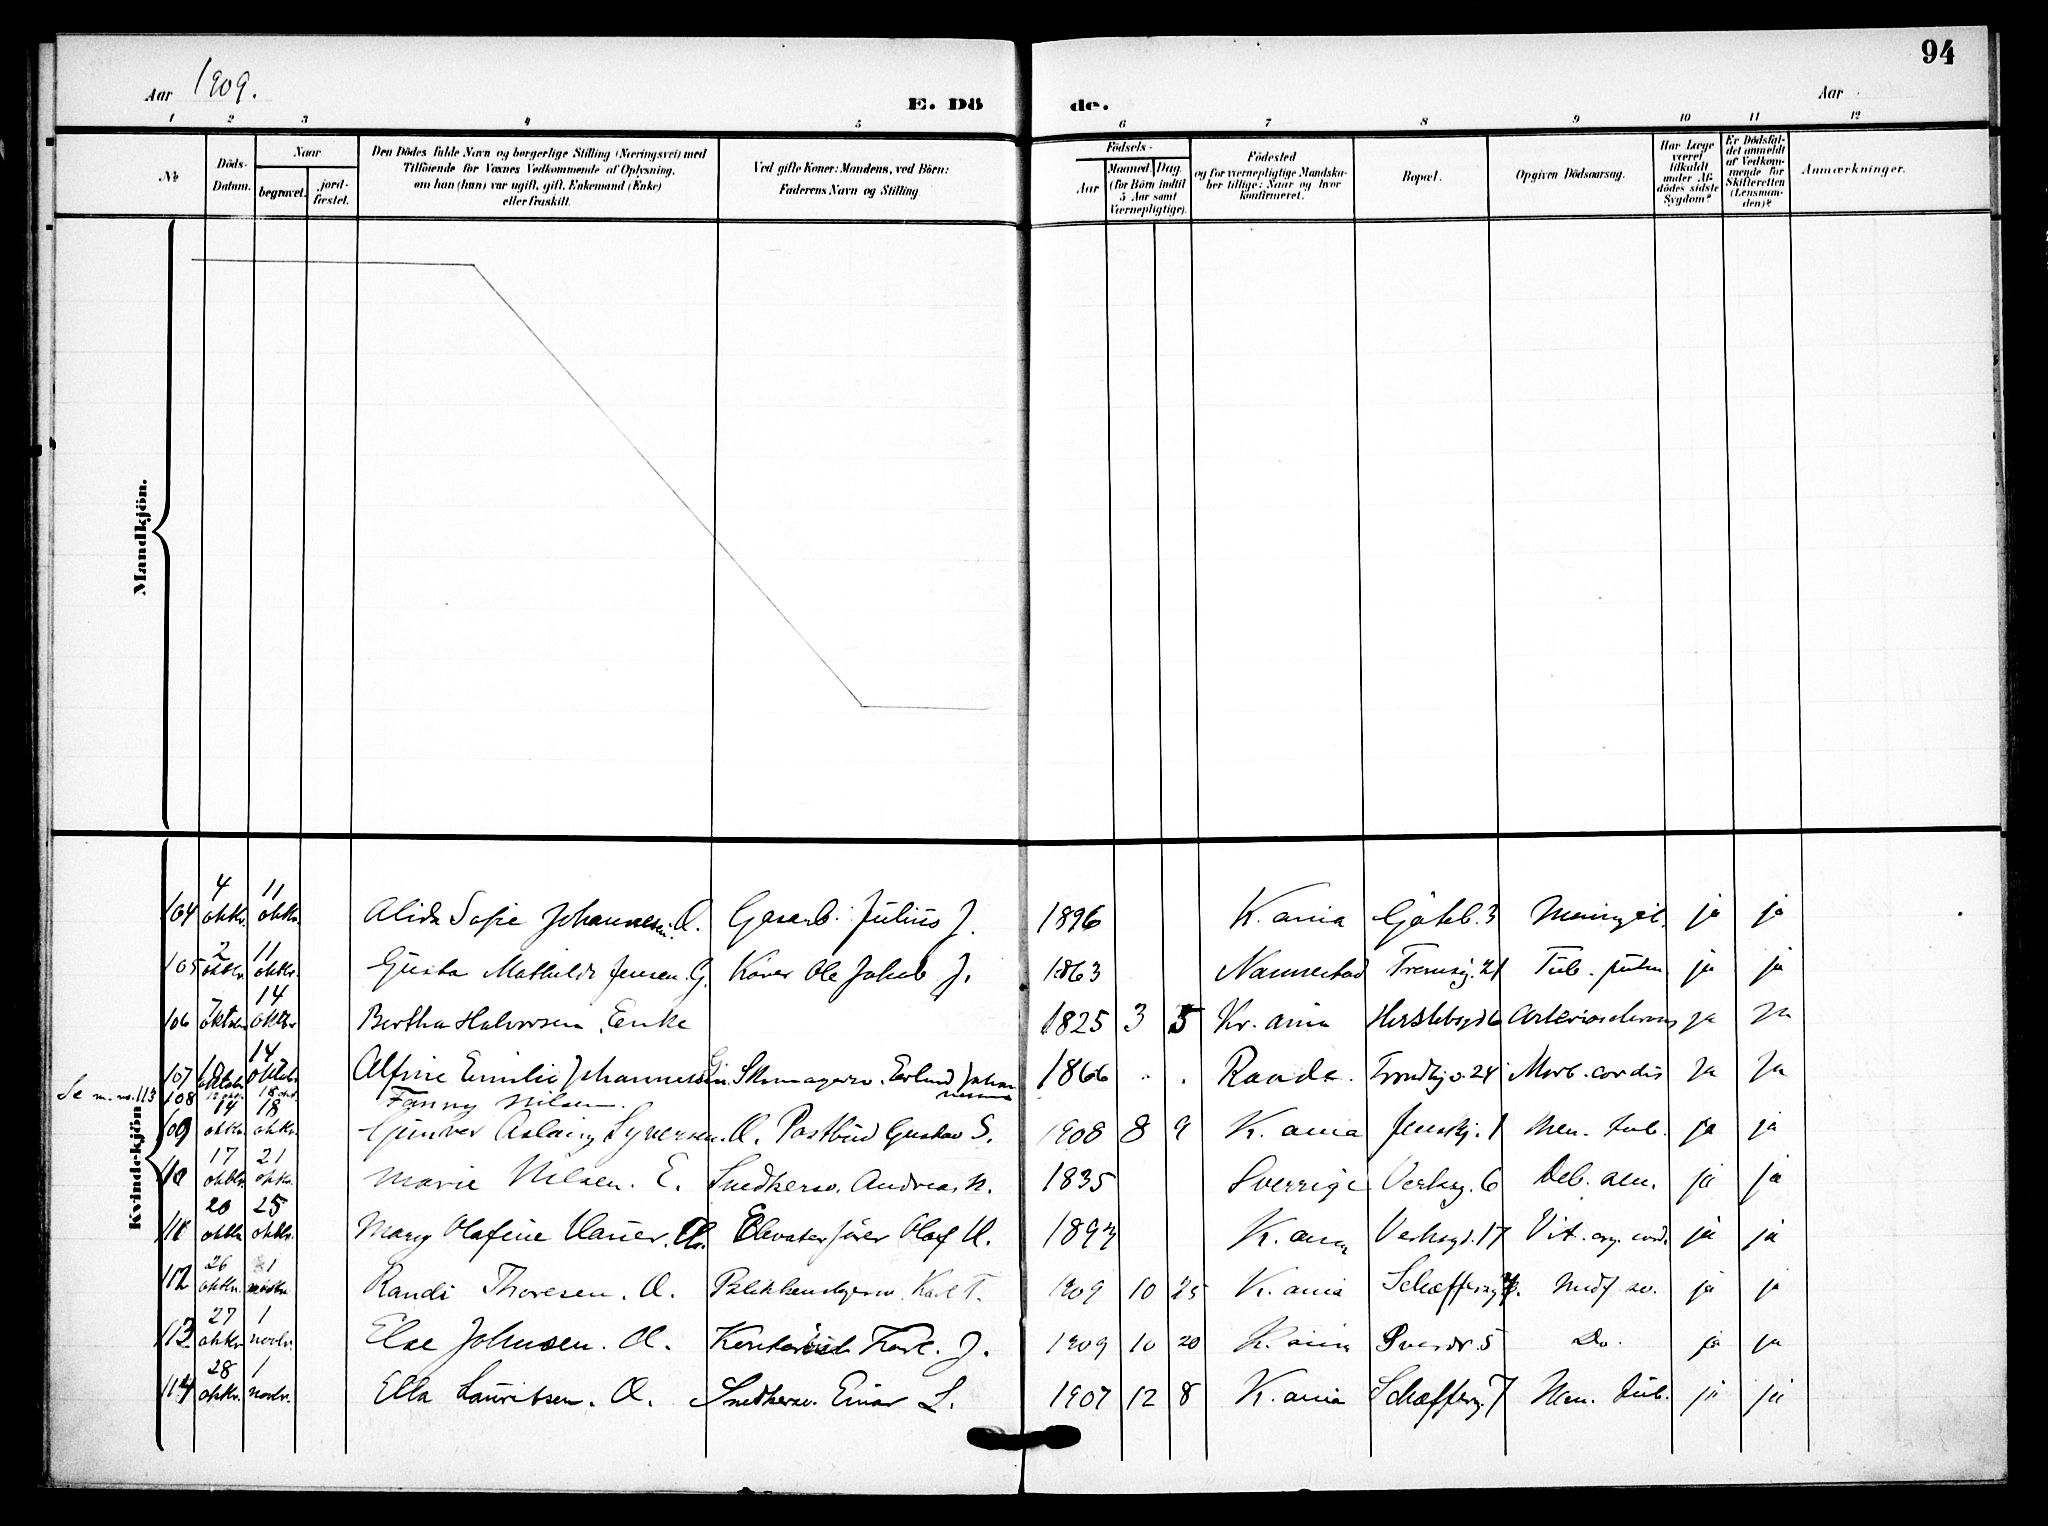 94
Aar 1909.
E. Dö
de.
Aar
1 2 3 4 5 6 7 8 9 10 11 12
No
Döds-Datum.
Naar
begravet.
jord-fæstet.
Den Dödes fulde Navn og borgerlige Stilling (Næringsvei) med
Tilföiende for Voxnes Vedkommende af Oplysning,
om han (hun) var ugift, gift, Enkemand (Enke)
eller fraskilt.
Ved gifte Koner: Mandens, ved Börn:
Faderens Navn og Stilling.
Födsels-
Aar
Maaned. Dag.
(for Börn indtil
5 Aar samt
Værnepligtige).
Födested
og for værnepligtige Mandska-
ber tillige: Naar og hvor
konfirmeret.
Bopæl.
Opgiven Dödsaarsag.
Har Læge
været
tilkaldt
under Af-
dödes sidste
Sygdom?
Er Dödsfal-
det anmeldt
af Vedkom-
mende for
Skifteretten
(Lensman-
den)?
Anmærkninger.
Mandkjön.
Kvindekjön
104 4 oktbr. 11 oktbr. Alida Sofie Johannesen. U. Gasarb. Julius J. 1896 K.ania Götebg. 3 Meningit. ja ja
105 2 oktbr. 11 oktbr. Gusta Mathilde Jensen. G. Kører Ole Jakob J. 1863 Nannestad Tromsøg. 21 Tub. pulm. ja ja
106 7 oktbr 14 oktbr Bertha Halvorsen, Enke 1825 3 5 Kr.ania Herslebsgd 6 Arteriosclerosis ja ja
107 oktbr 14 oktbr Alfine Emilie Johannessen. Gi. Skomagersv. Erlund Johannessen 1866 Raade. Trondhj.v. 24 Morb. cordis ja ja
Se m. no. 113 108 Fanny Nilsen.
109 14 oktbr. 18 oktbr. Gunvor Aslaug Syversen. U. Postbud Gustav S. 1908 8 9 K.ania Jenskj. 1 Men. tub. ja ja
110 17 oktbr. 21 oktbr. Marie Nilsen. E. Snedkersv. Andreas N. 1835 Sverrige Verksg. 6 Deb. sen. ja ja
111 20 oktbr 25 oktbr. Mary Olafine Hauer. U. Elevatorfører Olaf H. 1897 K.ania Verksgd. 17 Vit. org. cord. ja ja
112 26 oktbr. 1 novbr Randi Thoresen. U. Blikkenslagersv. Karl T. 1909 10 25 K.ania Schæffersg. Medf. sv. ja ja
113 27 oktbr. 1 novbr. Else Johnsen. U. Kontorist Karl J. 1909 10 20 K.ania Sverdr. 5 Do. ja ja
114 28 oktbr. 1 novbr. Ella Lauritsen. U. Snedkersv. Einar L. 1907 12 8 K.ania Schæffersg. 7 Men. tub. ja ja